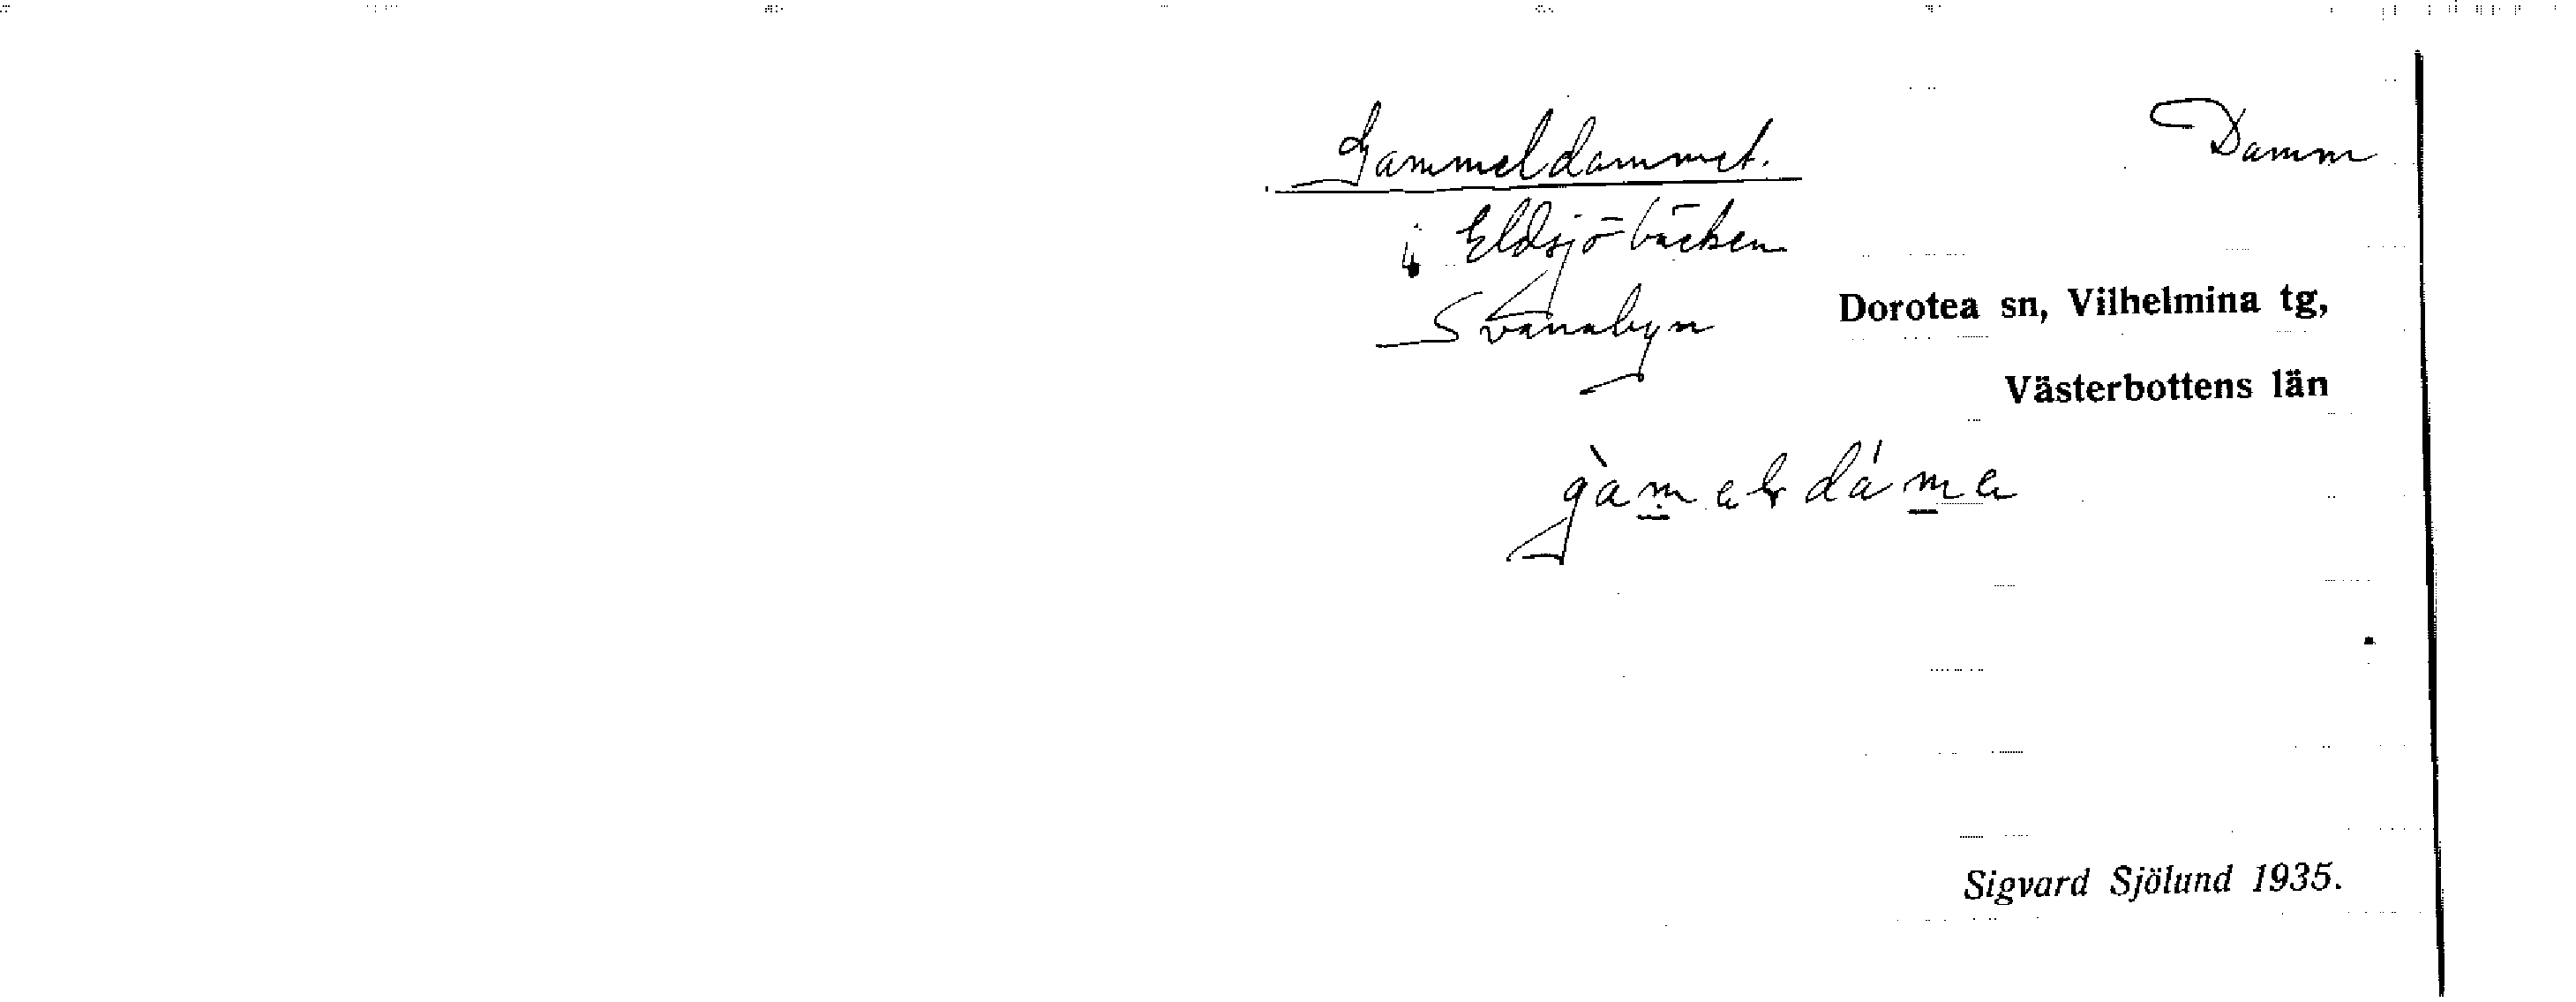 Gammeldammet. Damm
i Eldsjöbäcken
Svanabyn
Dorotea sn, Vilhelmina tg,
Västerbottens län
Sigvard Sjölund 1935.